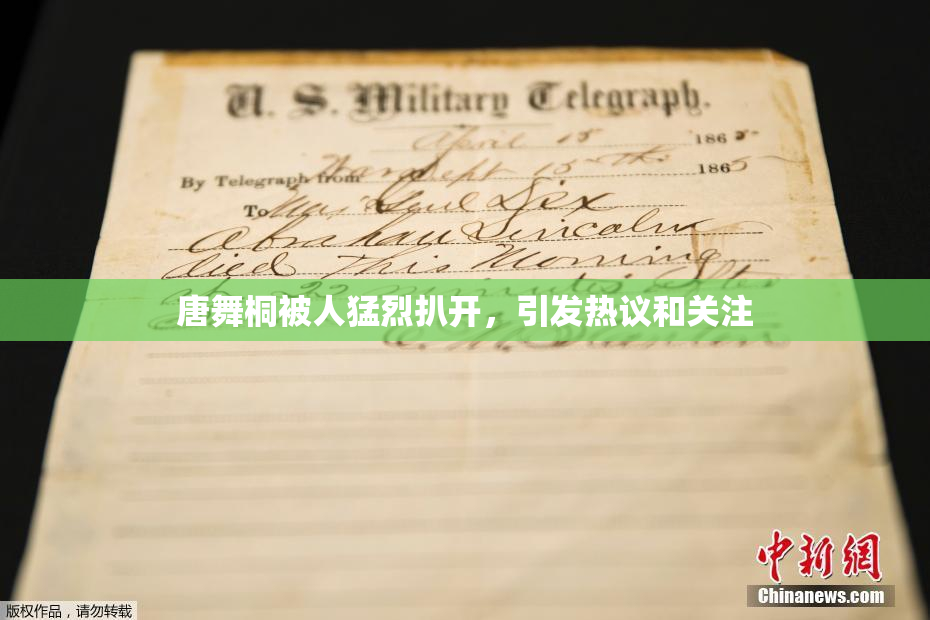 U. S. Military Telegraph.
April 15 1865
By Telegraph from War Dept 15th 1865
To Maj Genl Dix
Abraham Lincoln
died This Morning
at 22 minutes after
唐舞桐被人猛烈扒开，引发热议和关注
E. M. Stanton
中新网
Chinanews.com
版权作品，请勿转载